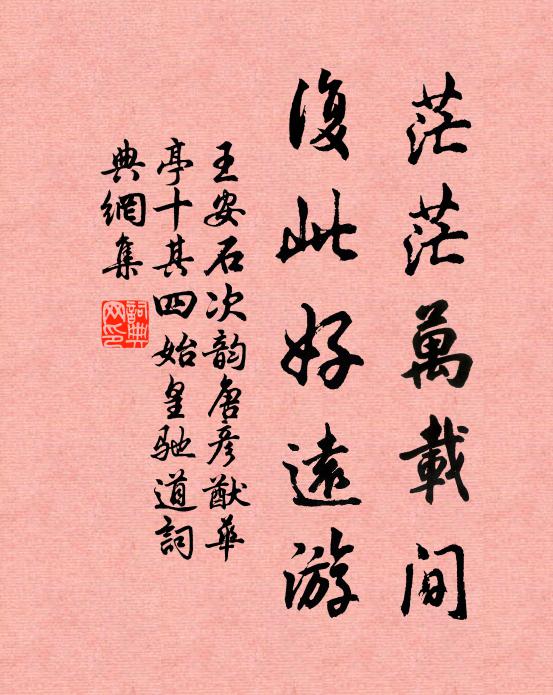 茫茫萬載間
復此好遠游
王安石次韵唐彦猷華
亭十其四始皇馳道詞
典網集
詞典
网印